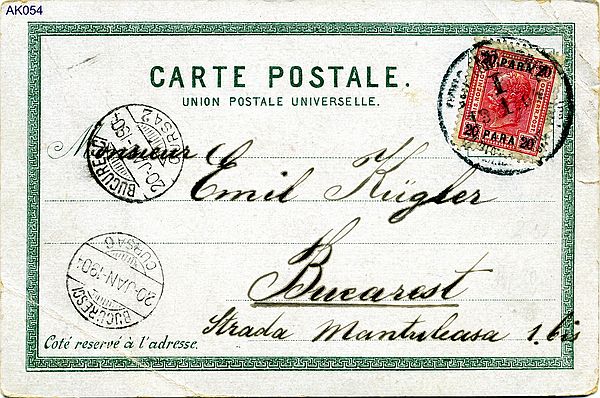 AK054
CARTE POSTALE.
UNION POSTALE UNIVERSELLE.
20 PARA 20
20 PARA 20
CURSA 2
20-J
BUCURESCI
Monsieur
Emil Kügler
Bucarest
Strada Mantuleasa 1. bis
CURSA 6
20-JAN-190
BUCURESCI
Coté reservé à l'adresse.